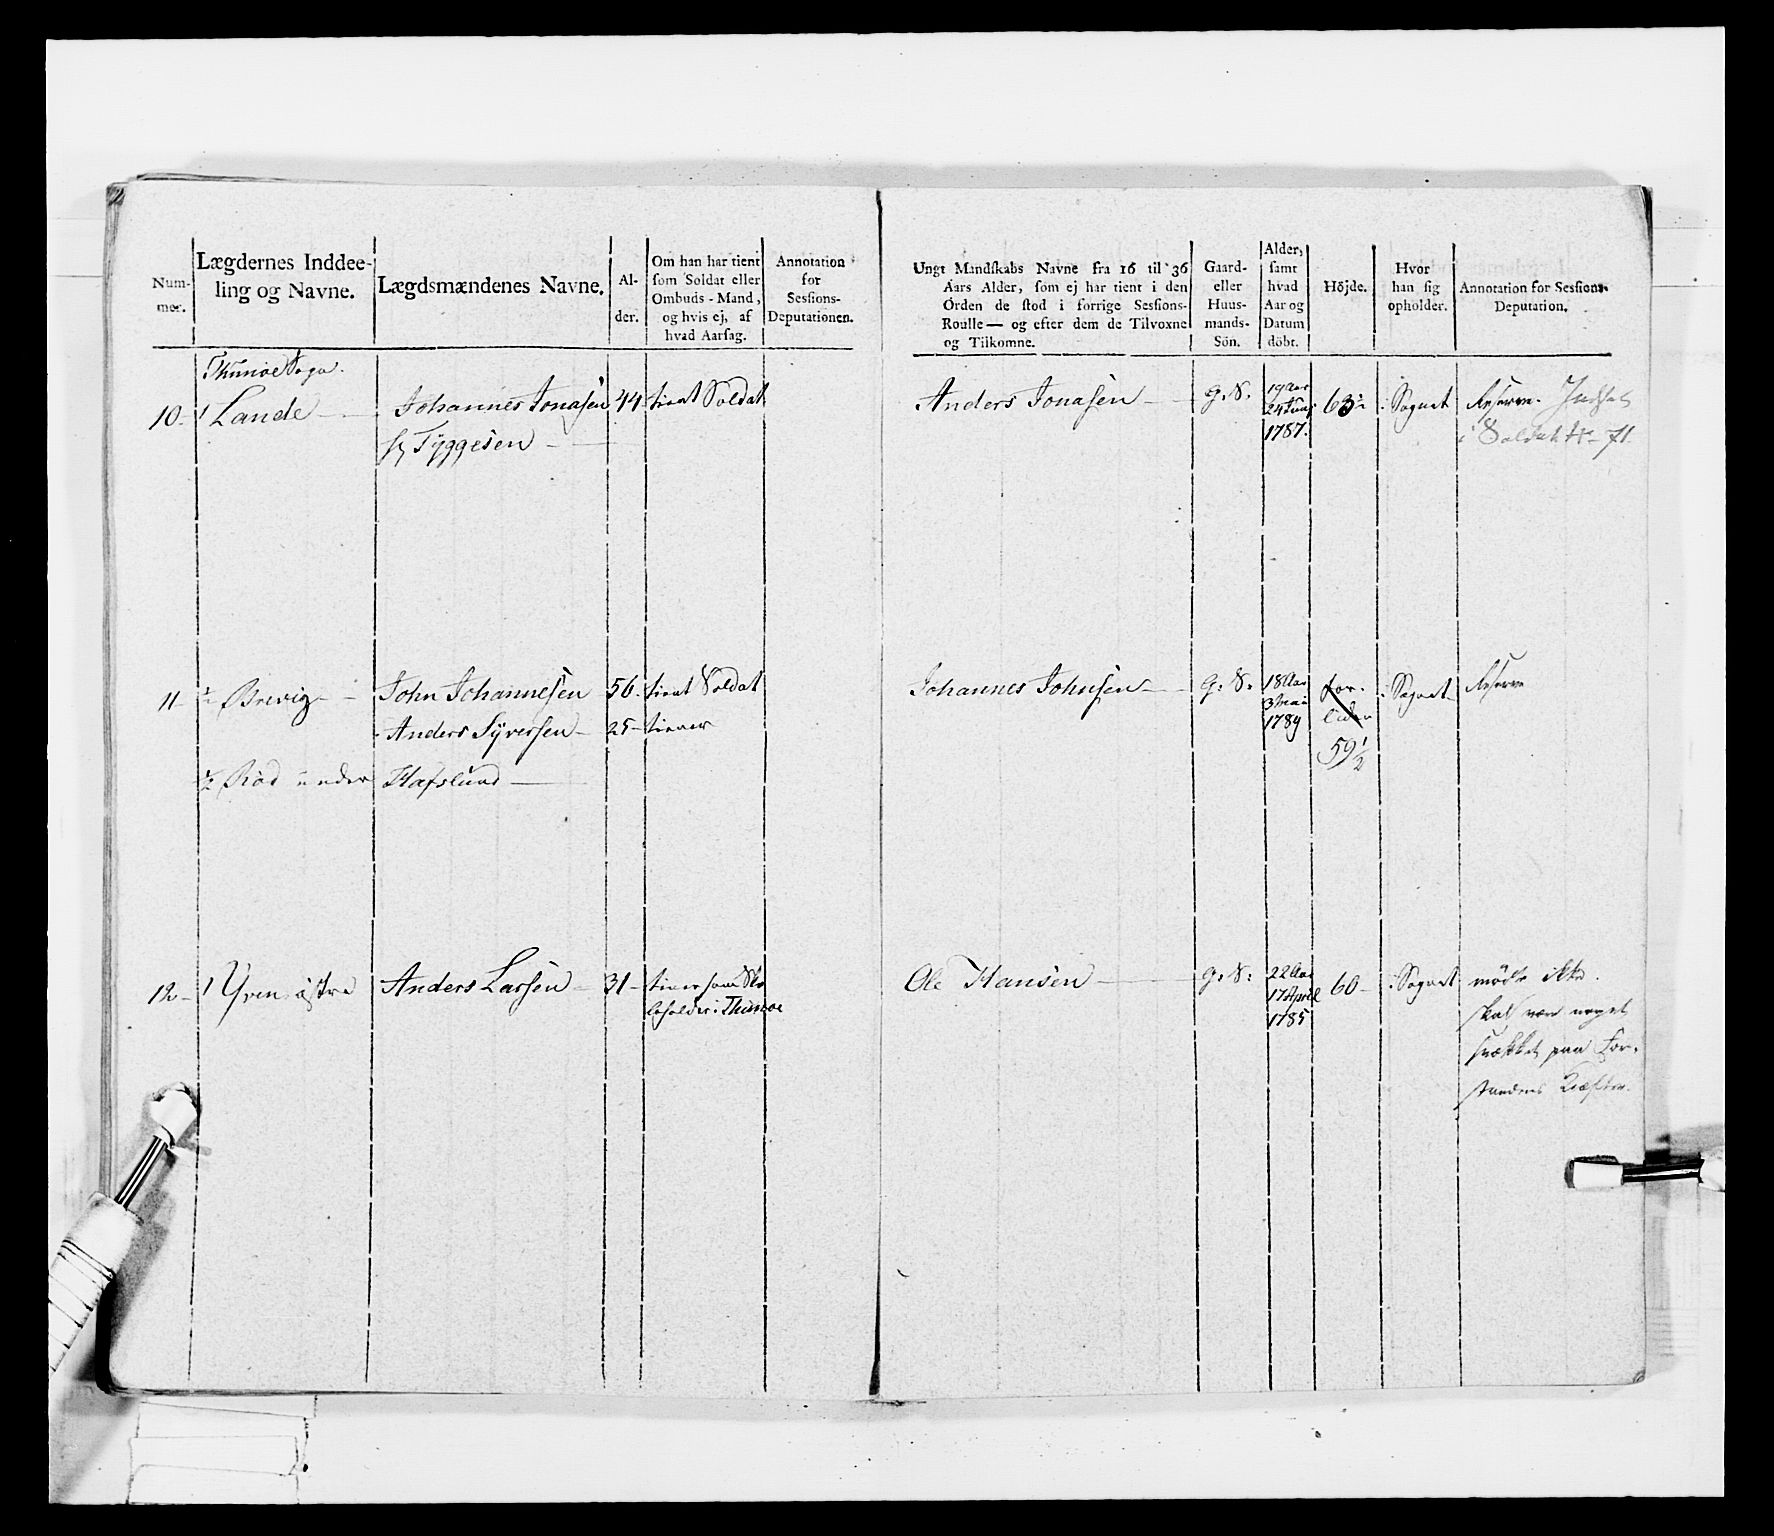 Nummer.
Lægdernes Inddeeling og Navne.
Lægdsmændenes Navne.
Alder.
Om han har tient
som Soldat eller
Ombuds-Mand,
og hvis ej, af
hvad Aarsag.
Annotation
for
Sessions-
Deputationen.
Ungt Mandskabs Navne fra 16 til 36
Aars Alder, som ej har tient i den
Orden de stod i forrige Sessions-
Roulle — og efter dem de Tilvoxne
og Tilkomne.
Gaard-
eller
Huus-
mands-
Sön.
Alder,
samt
hvad
Aar og
Datum
döbt.
Höjde.
Hvor
han sig
opholder.
Annotation for Sessions-
Deputation.
Thunøe Sogn.
10- 1 Lande — Johannes Jonasen 44 tient Soldat
Tyggesen —
Anders Jonasen — G. S. 19 Aar 63½ i Sognet Reserve. Indsat
24 Juni i Soldat Nr 71
1787.
11- ½ Brevig - John Johannesen 56- tient Soldat
Anders Syversen- 25- tiener
½ Röd under Hafslund —
Johannes Johnsen — G. S. 18 Aar for- i Sognet Reserve
3 Mai lider
1789 59½
12- 1 Yven østre Anders Larsen 31- tiener som
i Thunøe
Ole Hansen — G. S. 22 Aar 60- i Sognet mødte ikke.
17 April skal være noget
1785 svækket paa For-
standens Kræfter.